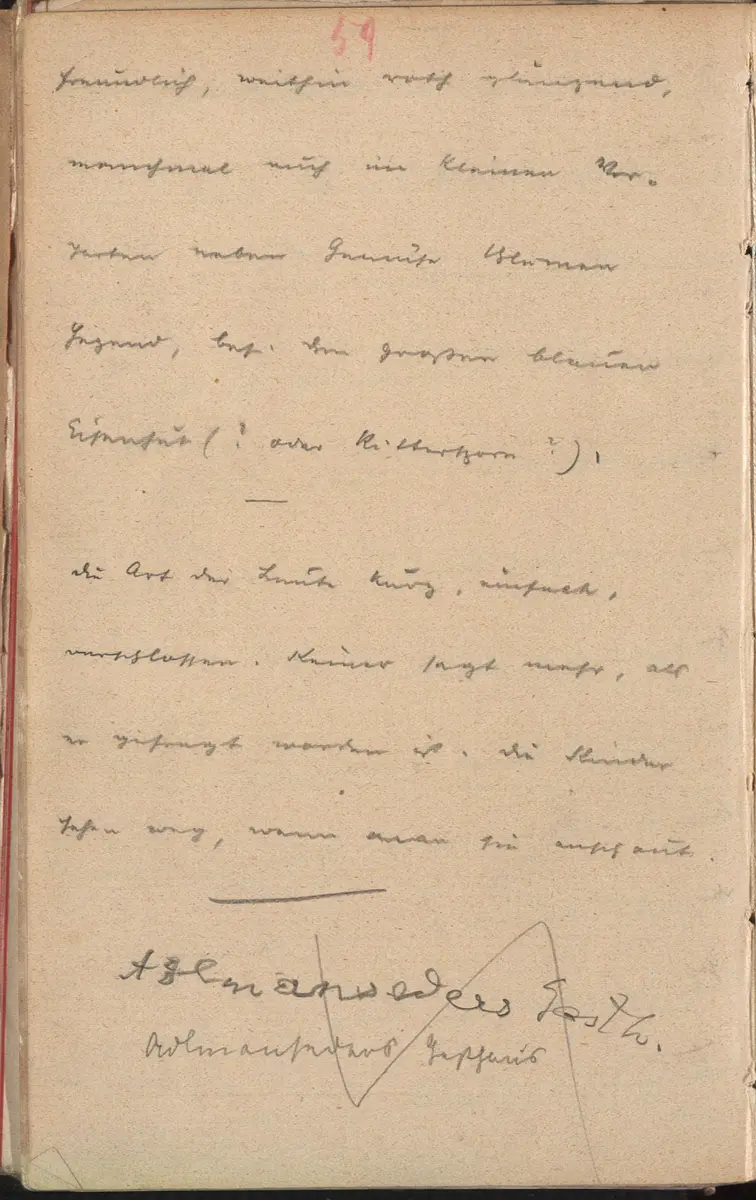 59
freundlich, weithin roth glänzend,
manchmal auch im kleinen Vor-
garten neben Gemüse Blumen
hegend, bes. den großen blauen
Eisenhut (? oder Rittersporn ?).
—
die Art der Leute kurz, einfach,
verschlossen. Keiner sagt mehr, als
er gefragt worden ist. die Kinder
sehen weg, wenn man sie anschaut.
Adlmanseders Gasth.
Adlmanseders Gasthaus